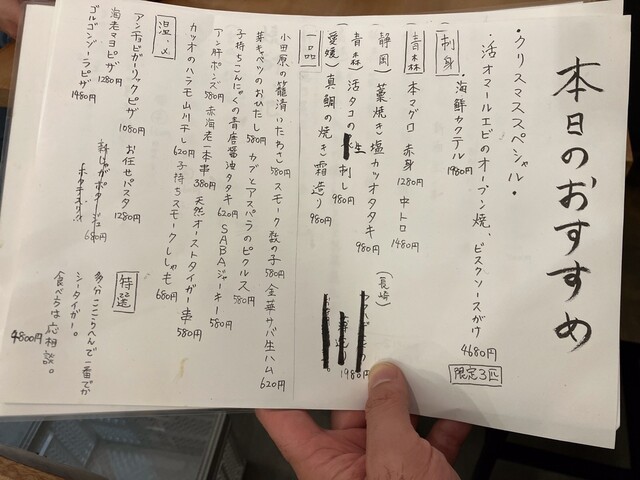 本日のおすすめ
・クリスマススペシャル・
・活オマールエビのオーブン焼、ビスクソースがけ 4680円 限定3匹
・海鮮カクテル 1980円
刺身
青森 本マグロ 赤身 1280円 中トロ 1480円
静岡) 藁焼き塩カツオタタキ 980円 (長崎)
青森) 活タコの生刺し 980円 1980円
愛媛) 真鯛の焼き霜造り 980円
一品
小田原の籠清いたわさ 580円 スモーク数の子 580円 金華サバ生ハム 620円
芽キャベツのおひたし 580円 カブとアスパラのピクルス 580円
子持ちこんにゃくの青唐醤油タタキ 620円 SABAジャーキー 580円
アン肝ポンズ 580円 赤海老一本串 380円 天然オーストタイガー串 580円
カツオのハラモ山川干し 620円 子持ちスモークししゃも 680円
温・〆
アンチョビガーリックピザ 1080円 お任せパスタ 1280円
海老マヨピザ 1280円 新じゃがポタージュ 680円
ゴルゴンゾーラピザ 1480円
特選
多分ここらへんで一番でか
シータイガー。
食べ方は応相談。
4800円